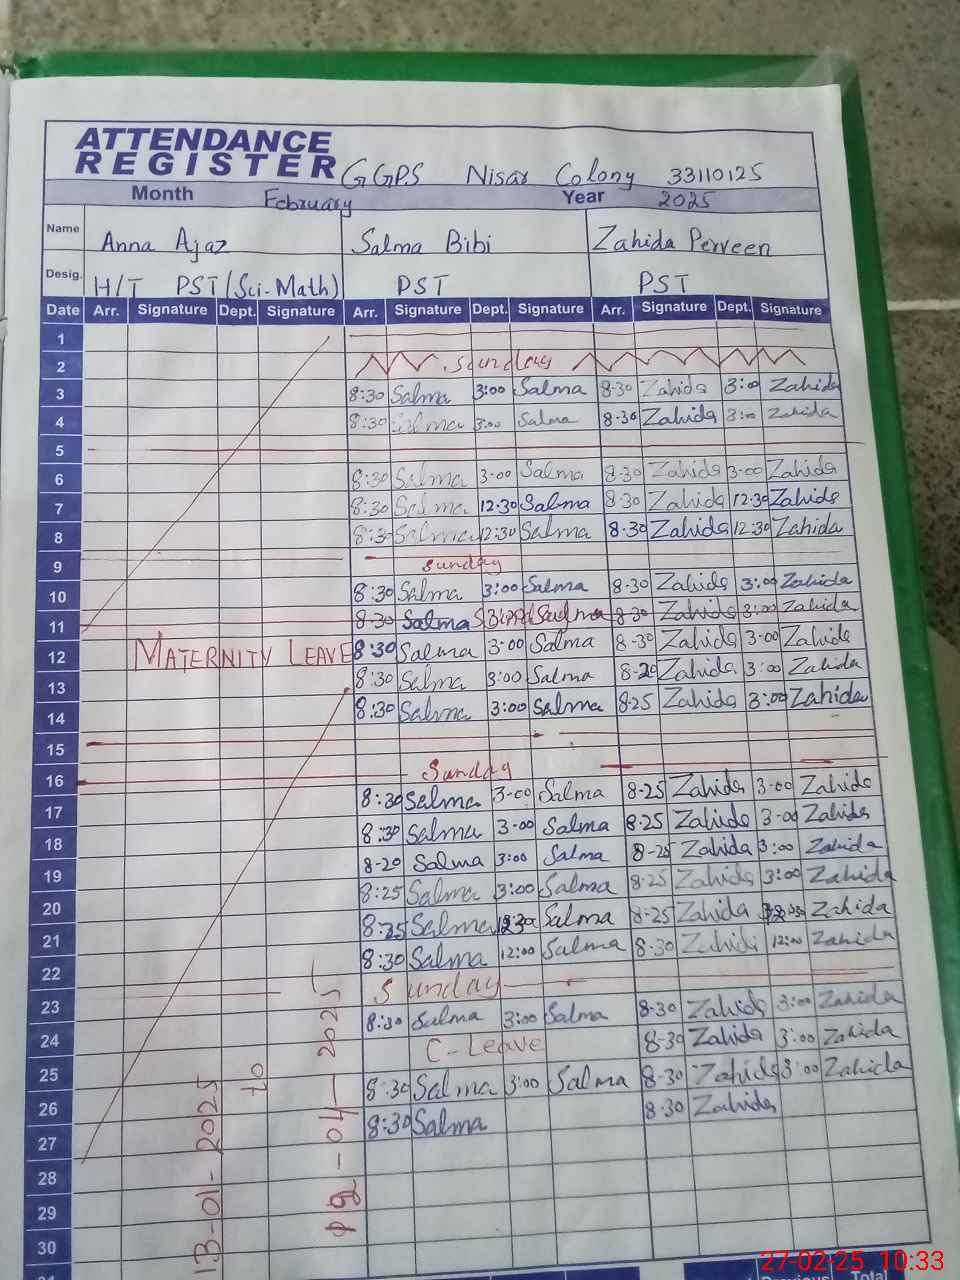 ATTENDANCE
REGISTER GGPS Nisar Colony 33110125
Month February Year 2025
Name Anna Ajaz Salma Bibi Zahida Perveen
Desig. H/T PST (Sci-Math) PST PST
Date Arr. Signature Dept. Signature Arr. Signature Dept. Signature Arr. Signature Dept. Signature
1
2 Sunday
3 8:30 Salma 3:00 Salma 8-30 Zahida 3:00 Zahida
4 8:30 Salma 3:00 Salma 8-30 Zahida 3:00 Zahida
5
6 8:30 Salma 3-00 Salma 8-30 Zahida 3-00 Zahida
7 8:30 Salma 12:30 Salma 8-30 Zahida 12:30 Zahida
8 8:30 Salma 12:30 Salma 8-30 Zahida 12:30 Zahida
9 Sunday
10 8:30 Salma 3:00 Salma 8-30 Zahida 3:00 Zahida
11 8-30 Salma Salma 8-30 Zahida 3:00 Zahida
12 MATERNITY LEAVE 8:30 Salma 3-00 Salma 8-30 Zahida 3-00 Zahida
13 8:30 Salma 3:00 Salma 8-20 Zahida 3:00 Zahida
14 8:30 Salma 3:00 Salma 8-25 Zahida 3:00 Zahida
15
16 Sunday
17 8:30 Salma 3-00 Salma 8-25 Zahida 3-00 Zahida
18 8:30 Salma 3-00 Salma 8-25 Zahida 3-00 Zahida
19 8-20 Salma 3:00 Salma 8-25 Zahida 3:00 Zahida
20 8:25 Salma 3:00 Salma 8-25 Zahida 3:00 Zahida
21 8:25 Salma Salma 8-25 Zahida Zahida
22 8:30 Salma 12:00 Salma 8-30 Zahida 12:00 Zahida
23 Sunday
24 8:30 Salma 3:00 Salma 8-30 Zahida 3:00 Zahida
25 C-Leave 8-30 Zahida 3:00 Zahida
26 8:30 Salma 3:00 Salma 8-30 Zahida 3:00 Zahida
27 8:30 Salma 8-30 Zahida
28
29
30
13-01-2025
to
-04-2025
Previous Total
27-02-25 10:33